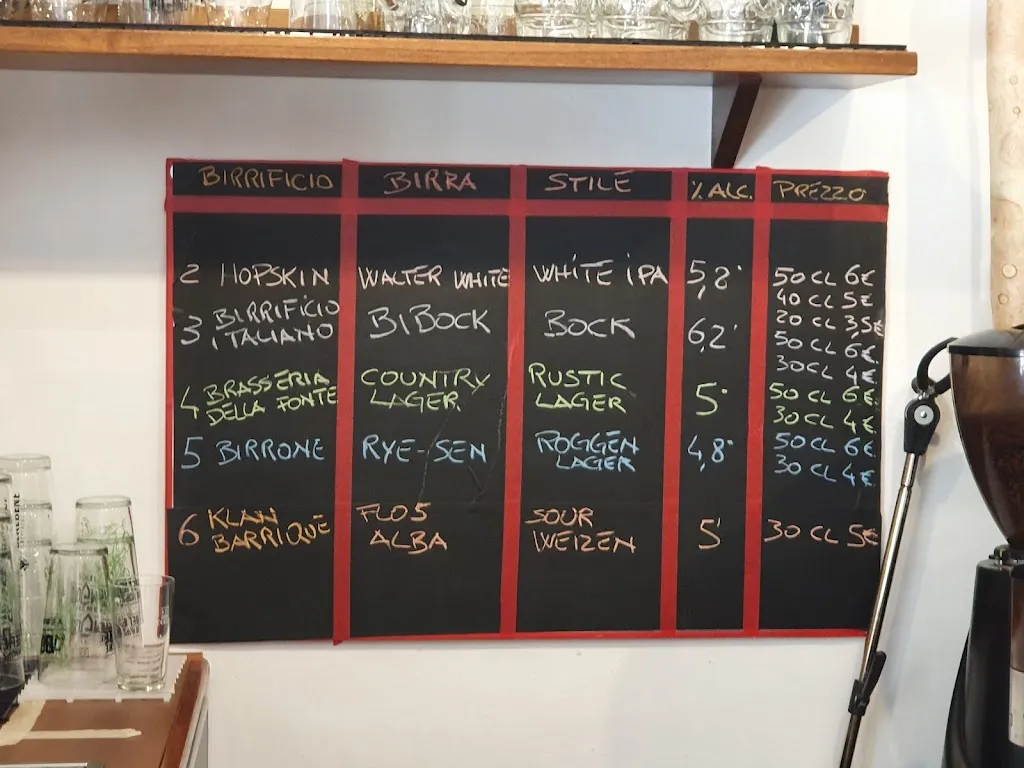 BIRRIFICIO BIRRA STILE % ALC. PREZZO
2 HOPSKIN WALTER WHITE WHITE IPA 5,2° 50 CL 6€
40 CL 5€
20 CL 3,5€
3 BIRRIFICIO ITALIANO BIBOCK BOCK 6,2° 50 CL 6€
30 CL 4€
4 BRASSERIA DELLA FONTE COUNTRY LAGER RUSTIC LAGER 5° 50 CL 6€
30 CL 4€
5 BIRRONE RYE-SEN ROGGEN LAGER 4,8° 50 CL 6€
30 CL 4€
6 KLAN BARRIQUE FLOS ALBA SOUR WEIZEN 5° 30 CL 5€